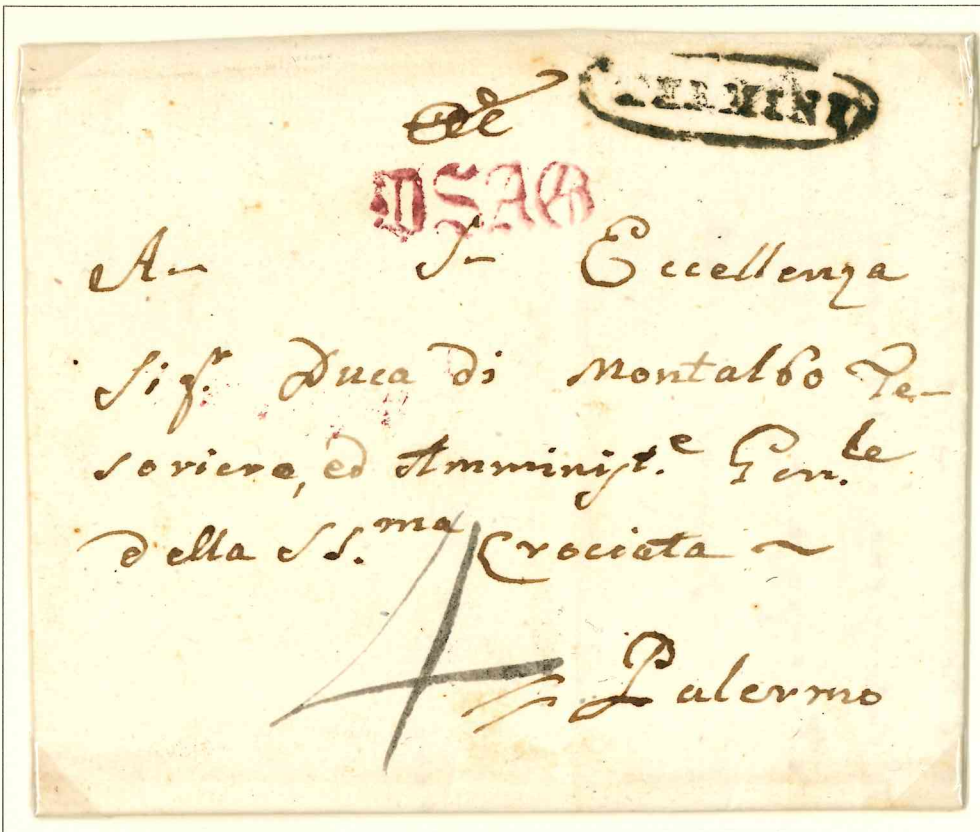 TERMINI
DSAG
A S Eccellenza
Sig.r Duca di Montalbo Te-
soriere, ed Amminist.e Gen.le
della SS.ma Crociata ~
4
Palermo